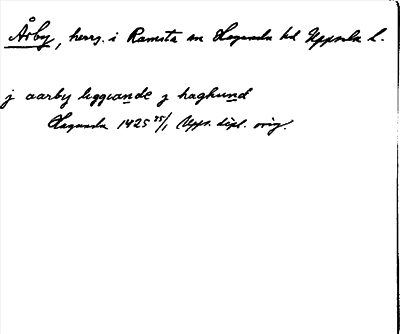 Årby, herrg. i Ramsta sn Hagunda hd Uppsala l.
j aarby liggiande j haghund
Hagunda 1425 25/1 Upps. dipl. orig.